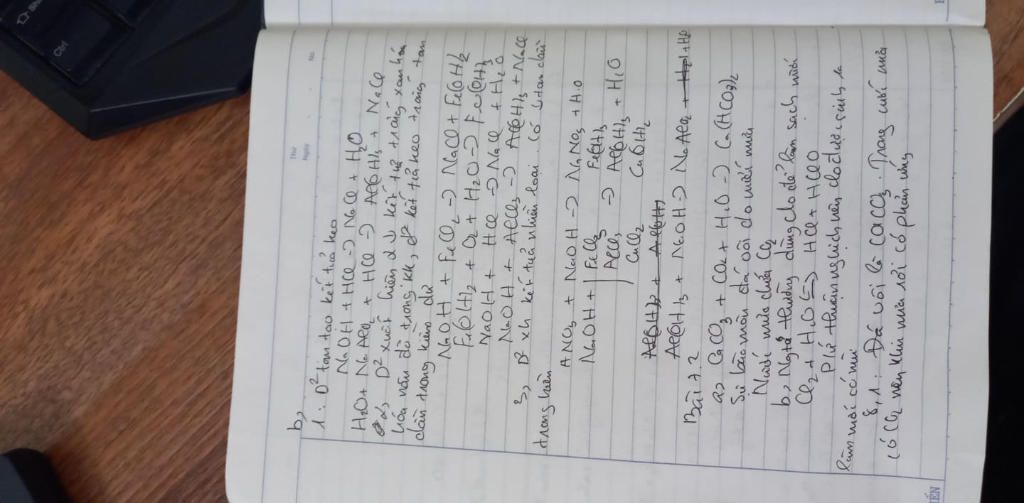 Thứ
Ngày
No.
b,
1: D² tán tạo kết tủa keo
NaOH + HCl => NaCl + H2O
H2O + NaAlO2 + HCl => Al(OH)3 + NaCl
2, D² xuất hiện 2 ↓ kết tủa trắng xanh hóa
nâu đỏ trong kk, kết tả keo trắng tan
dần trong kiềm dư
NaOH + FeCl2 => NaCl + Fe(OH)2
Fe(OH)2 + O2 + H2O => Fe(OH)3
NaOH + HCl => NaCl + H2O
NaOH + AlCl3 => Al(OH)3 + NaCl
3, D² xh kết tủa nhiều loại. Có ↓ tan dần
trong kiềm
NaOH => NaNO3 + H2O
NaOH + FeCl3 Fe(OH)3
AlCl3 => Al(OH)3 + H2O
CuCl2 Cu(OH)2
Al(OH)3 + NaOH => NaAlO2 + H2O
Bài 7?
a, CaCO3 + CO2 + H2O => Ca(HCO3)2
Sự bào mòn đá vôi do nước mưa
Nước mưa chứa
b, thường dùng clo để làm sạch nước
Cl2 + H2O <=> HCl + HClO
P/ứ thuận nghịch nên clo dư sinh ra
làm nước có mùi
8, 1: Đá vôi là CaCO3. Trong nước mưa
có CO2 nên khi mưa rơi có phản ứng